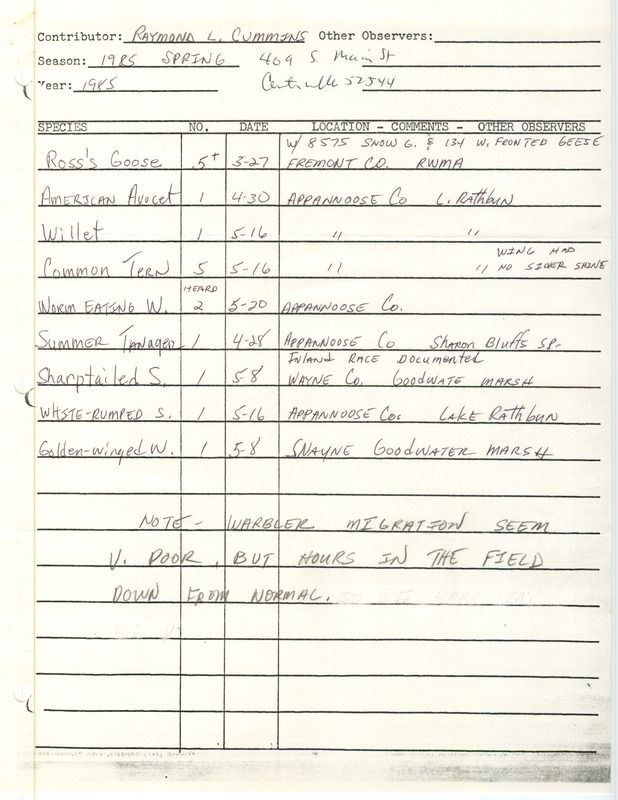 Contributor: RAYMOND L. CUMMINS Other Observers:
Season: 1985 SPRING 409 S. Main St
Year: 1985 Centerville 52544
SPECIES NO. DATE LOCATION - COMMENTS - OTHER OBSERVERS
W/ 8575 SNOW G. & 134 W. FRONTED GEESE
Ross's Goose 5+ 3-27 FREMONT CO. RWMA
AMERICAN AVOCET 1 4-30 APPANNOOSE Co L. Rathbun
Willet 1 5-16 " "
WING HAD
Common TERN 5 5-16 " " NO SILVER SHINE
HEARD
WORM EATING W. 2 5-20 APPANNOOSE Co.
SUMMER TANAGER 1 4-28 APPANNOOSE Co Sharon Bluffs SP-
INLAND RACE DOCUMENTED
Sharptailed S. 1 5-8 WAYNE Co. GOODWATE MARSH
WHITE-RUMPED S. 1 5-16 APPANNOOSE Co. LAKE Rathbun
Golden-winged W. 1 5-8 GOODWATER MARSH
NOTE - WARBLER MIGRATION SEEM
V. POOR, BUT HOURS IN THE FIELD
DOWN FROM NORMAL.